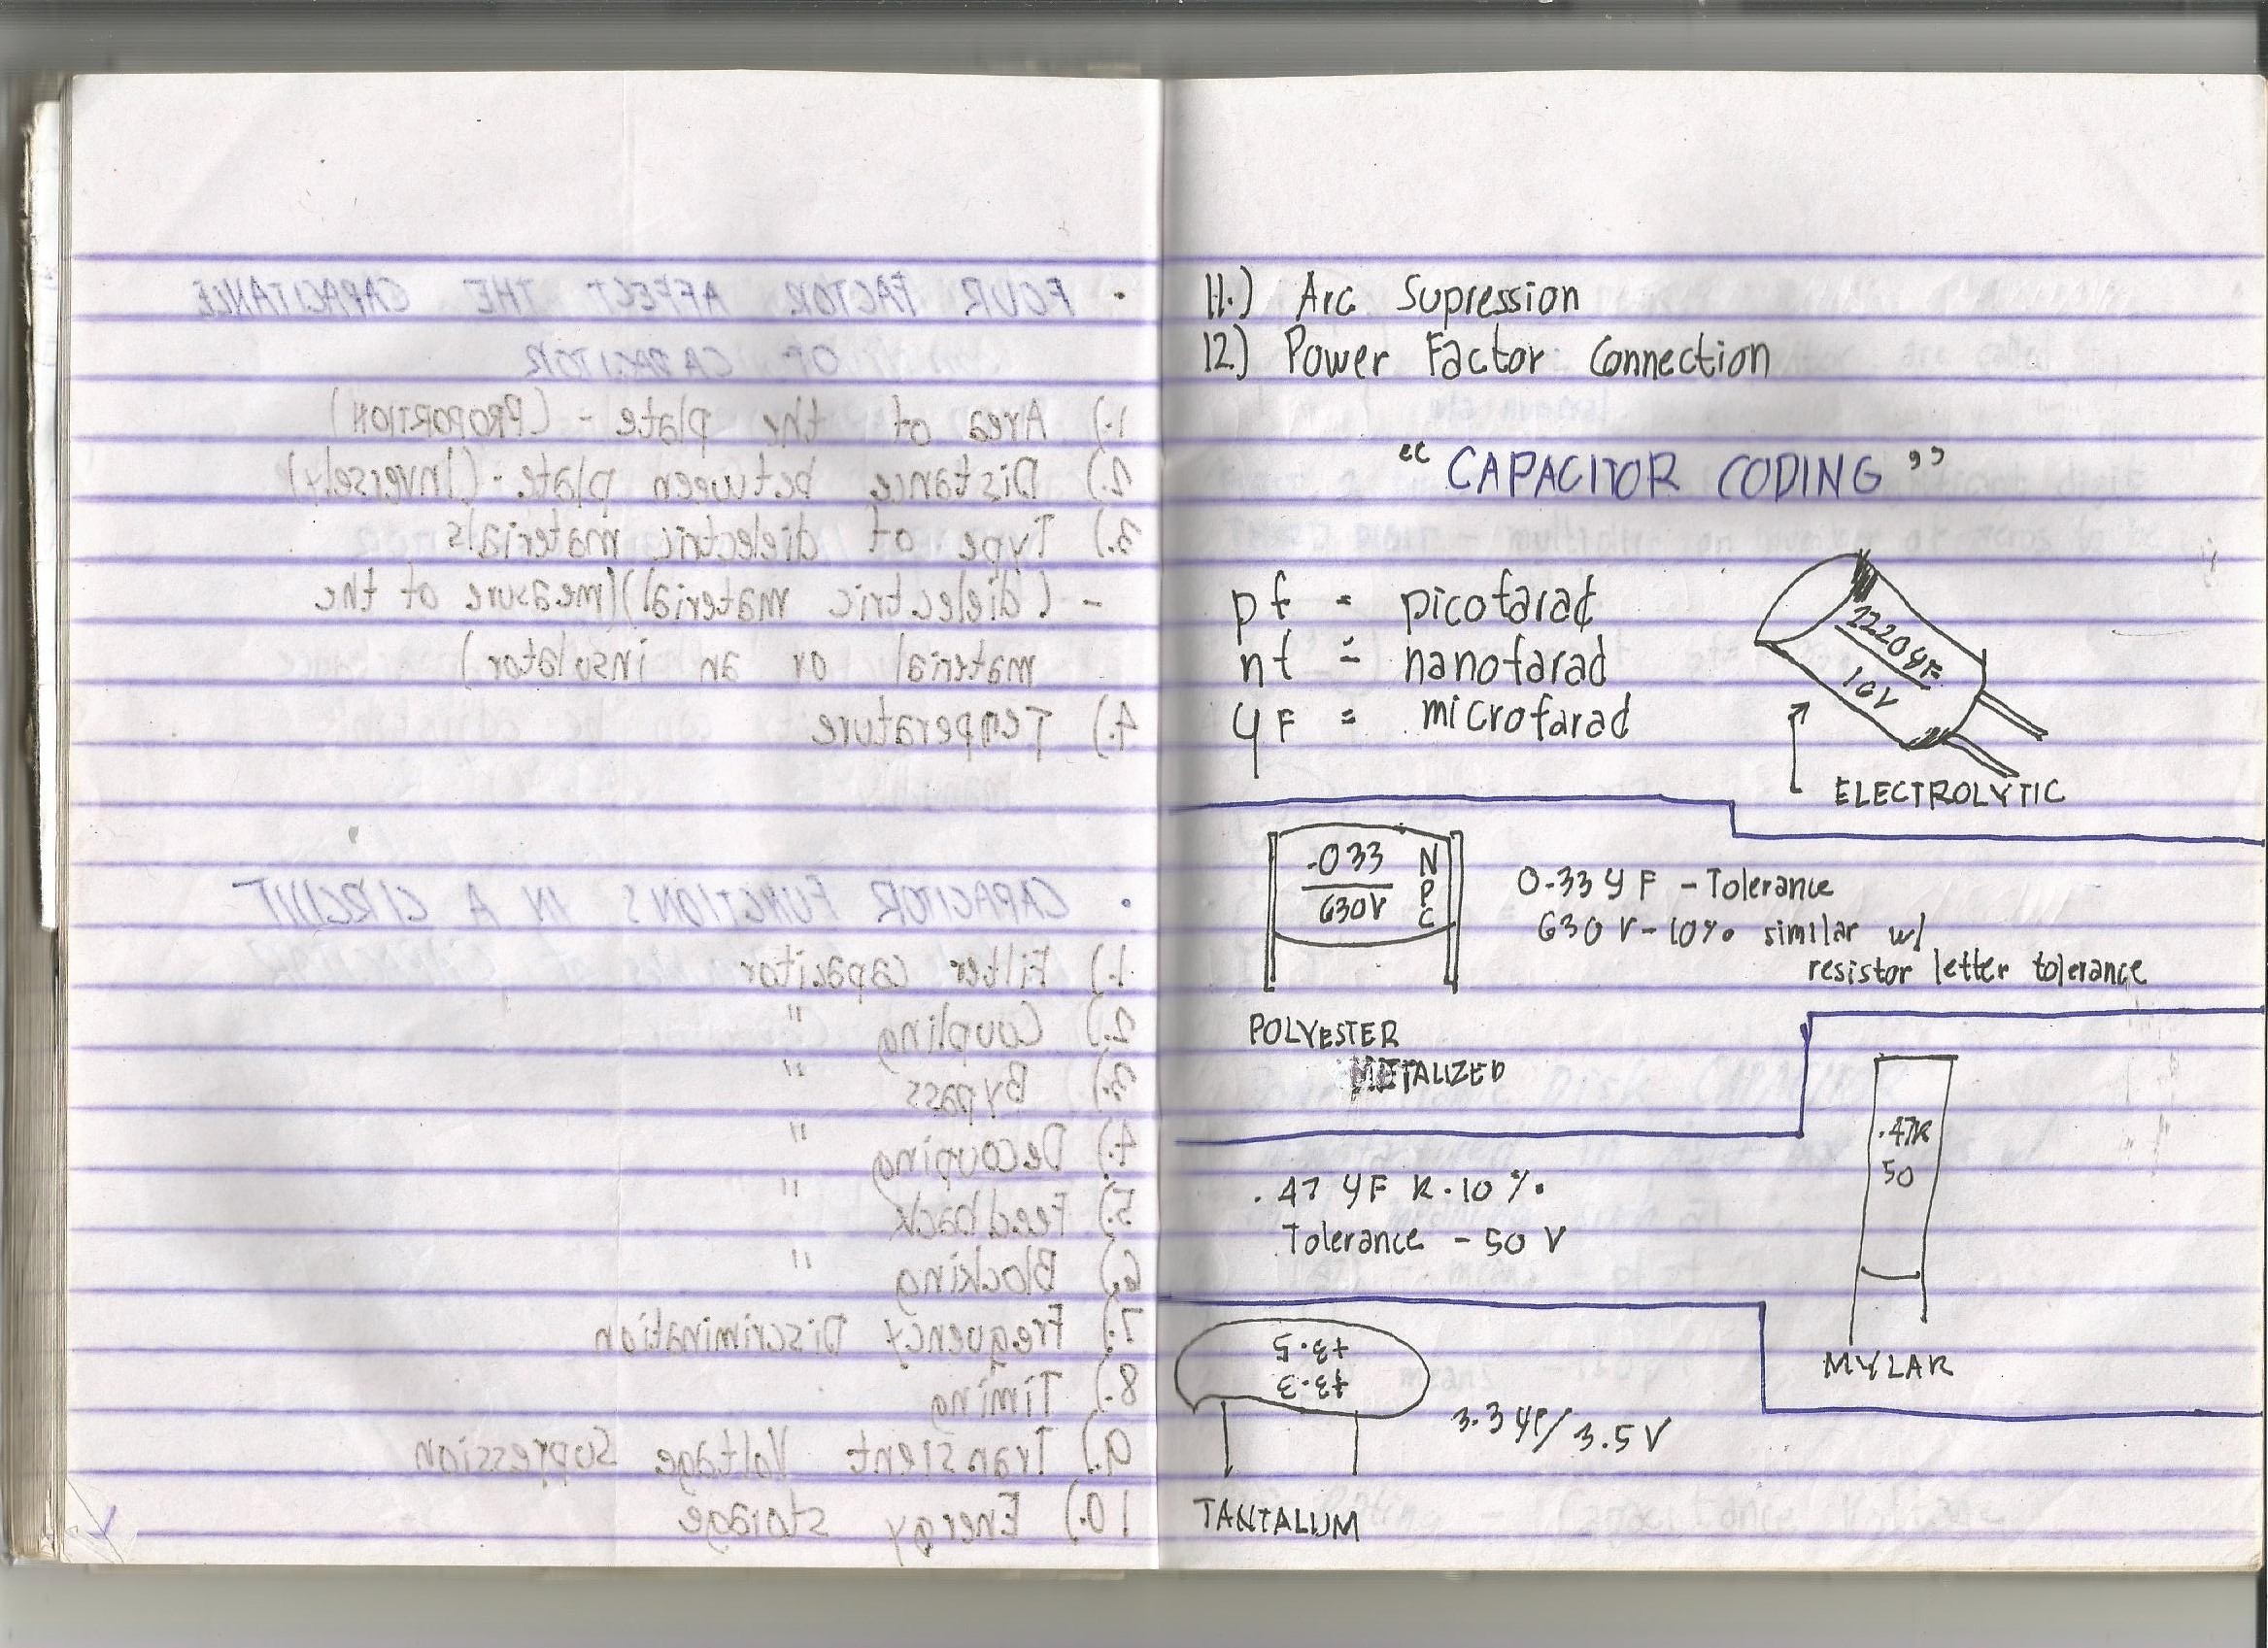 • FOUR FACTOR AFFECT THE CAPACITANCE
OF CAPACITOR
1.) Area of the plate - (PROPORTION)
2.) Distance between plate - (Inversely)
3.) Type of dielectric materials
- (dielectric material)(measure of the
material or an insulator)
4.) Temperature
• CAPACITOR FUNCTIONS IN A CIRCUIT
1.) Filter capacitor
2.) Coupling "
3.) Bypass "
4.) Decouping "
5.) Feedback "
6.) Blocking "
7.) Frequency Discrimination
8.) Timing
9.) Transient Voltage Supression
10.) Energy storage
11.) Arc Supression
12.) Power Factor Connection
"CAPACITOR CODING"
pf = picofarad
nf = nanofarad
μF = microfarad
2220μF
10V
ELECTROLYTIC
.033
630V
N
P
C
0.33μF - Tolerance
630V - 10% similar w/
resistor letter tolerance
POLYESTER
METALIZED
.47K
50
.47μF K.10%.
Tolerance - 50 V
MYLAR
+3.5
+3.3
3.3μF/3.5V
TANTALUM